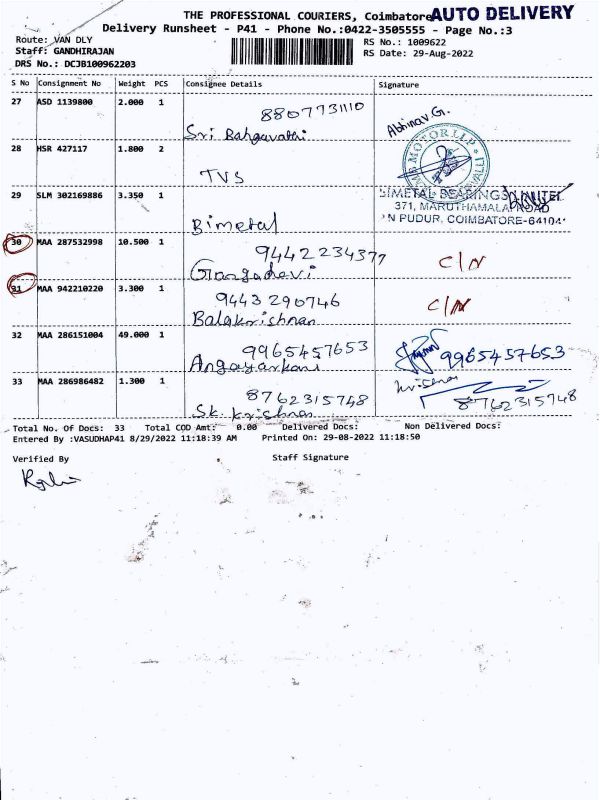 THE PROFESSIONAL COURIERS, Coimbatore AUTO DELIVERY
Delivery Runsheet - P41 - Phone No.:0422-3505555 - Page No.:3
Route: VAN DLY
RS No.: 1009622
Staff: GANDHIRAJAN
RS Date: 29-Aug-2022
DRS No.: DCJB100962203
S No Consignment No Weight PCS Consignee Details Signature
27 ASD 1139800 2.000 1 8807731110
Sri Bahgavathi
Abhinav G.
28 HSR 427117 1.800 2
TVS
MOTOR LLP
29 SLM 302169886 3.350 1
Bimetal
BIMETAL BEARINGS LIMITED
371, MARUTHAMALAI ROAD
N PUDUR, COIMBATORE-641041
30 MAA 287532998 10.500 1 9442234377
Gangadevi
C/N
31 MAA 942210220 3.300 1 9443290746
Balakrishnan
C/N
32 MAA 286151004 49.000 1 9965457653
Angayarkani
9965457653
33 MAA 286986482 1.300 1 8762315748
Sk. Krishnan
Krishna
8762315748
Total No. Of Docs: 33 Total COD Amt: 0.00 Delivered Docs: Non Delivered Docs:
Entered By :VASUDHAP41 8/29/2022 11:18:39 AM Printed On: 29-08-2022 11:18:50
Verified By Staff Signature